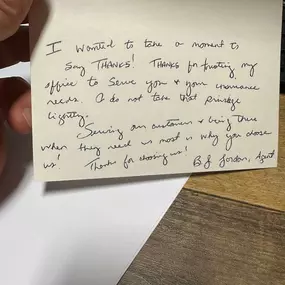 I wanted to take a moment to
say THANKS! THANKS for trusting my
office to serve you & your insurance
needs. I do not take that privilege
lightly.
Serving our customers & being there
when they need us most is why you choose
us! Thanks for choosing us!
BJ Jordan, Agent